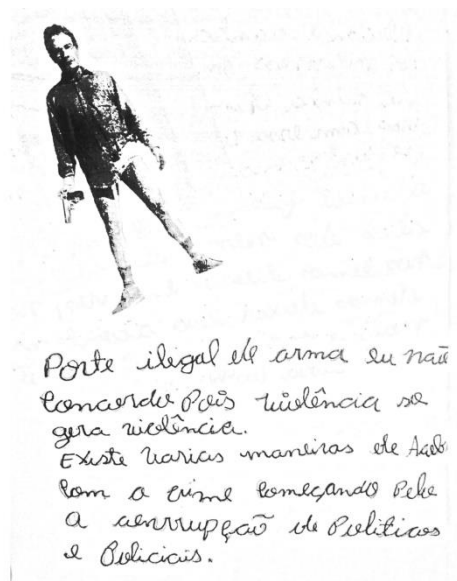 Porte ilegal de arma eu não
concordo Pois violência so
gera violência.
Existe varias maneiras de Acab
com o crime começando Pela
a corrupção de Politicos
e Policiais.